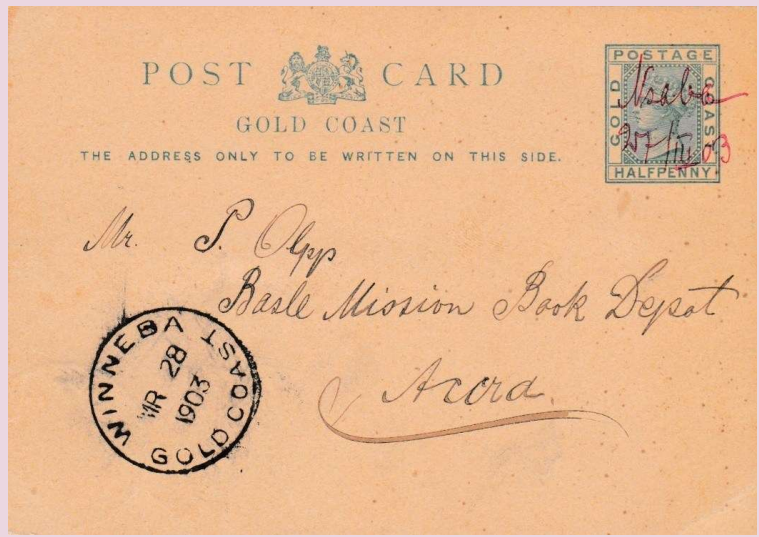 POST CARD
GOLD COAST
THE ADDRESS ONLY TO BE WRITTEN ON THIS SIDE.
POSTAGE
GOLD
COAST
HALFPENNY
Nsaba
27/III 03
Mr. P. Olpp
Basle Mission Book Depot
Accra
WINNEBA
MR 28
1903
GOLD COAST